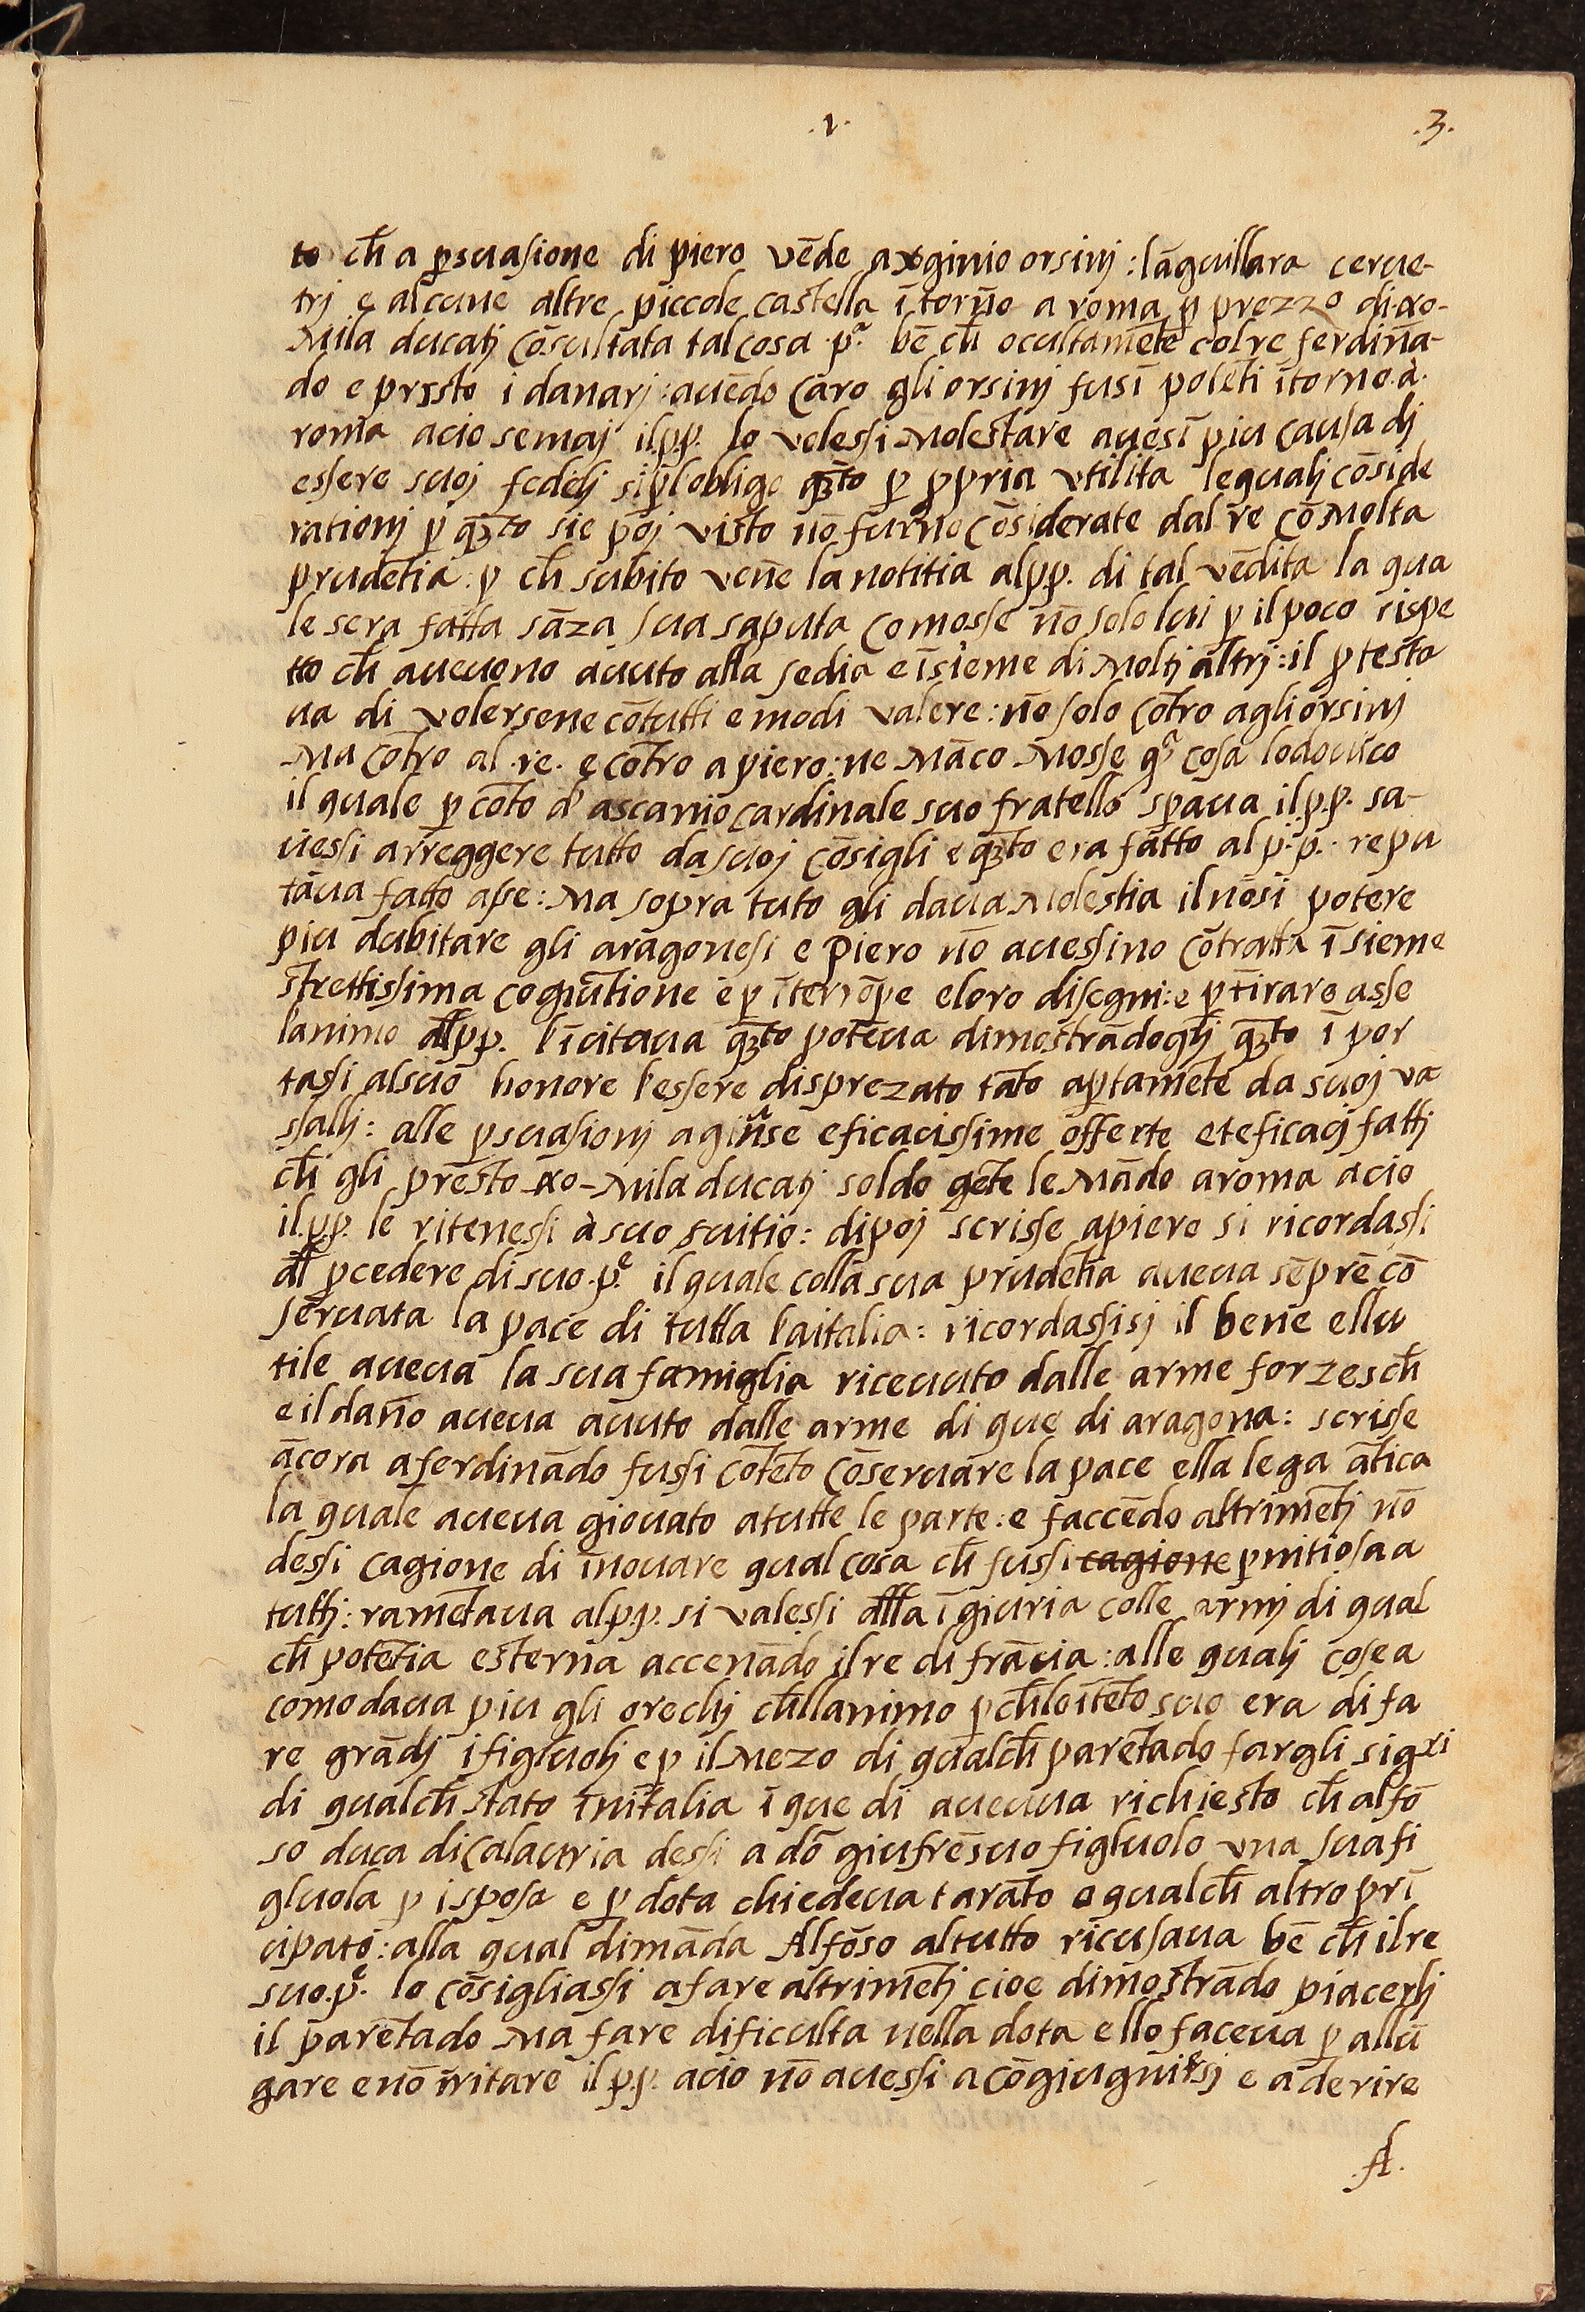 .1. .3.
to ch̄ a p̱suasione di piero vēde a virginio orsinj : lāguillara cerue-
trj e alcune altre piccole castella ītorno a roma p̱ prezzo di .xo-
Mila ducatj cōsultata tal cosa pᵃ. bē ch̄ ocultamēte col re ferdinā-
do e presto i danarj : auēdo caro gli orsinj fusī potēti ītorno .a.
roma acio se maj il .p.p. lo volessi Molestare auesī piu causa dj
essere suoj fedelj si p̱ lobligo qzto p̱ p̱pria vtilita le qualj cōside
rationj p̱ qzto sie poj visto nō furno cōsiderate dal re cō Molta
prudētia : p̱ ch̄ subito vene la notitia al p.p. di tal vēdita la qua
le sera fatta sāza sua saputa comosse nō solo lui p̱ il poco rispe
tto ch̄ aueuono auuto alla sedia e īsieme di Moltj altrj : il p̱testa
ua di volersene cō tutti e modi valere : nō solo cōtro agli orsinj
Ma cōtro al .re. e cōtro a piero : ne Māco Mosse qᵃ cosa lodouico
il quale p̱ cōto d' ascanio cardinale suo fratello sp̱aua il p.p. sa-
uessi arreggere tutto da suoj cōsigli e qzto era fatto al p.p. repu
taua fatto asse : Ma sopra tuto gli daua Molestia il nōsi potere
piu dubitare gli aragonesi e Piero nō auessino cōtratta īsieme
strettissima cogiūtione e p̱ īterrōpe e loro disegni : e p̱ tirare asse
lanimo al p.p. l'īcitaua qzto poteua dimostrādoglj qzto ī por
tassi al suo honore l'essere disprezato tāto ap̱tamēte da suoj va
ssallj : alle p̱suasionj agiūse eficacissime offerte et eficacj fattj
ch̄ gli presto .xo- Mila ducatj soldo gēte le Mādo a roma acio
il .p.p. le ritenessi à suo suitio : dipoj scrisse a piero si ricordassi
al p̱cedere di suo .pᵉ. il quale colla sua prudētia aueua sēpre cō
seruata la pace di tutta l'aitalia : ricordassisj il bene ellu
tile aueua la sua famiglia riceuuto dalle arme forzesch̄
e il dano aueua auuto dalle arme di que di aragona : scrisse
ācora a ferdinādo fussi cōtēto cōseruare la pace ella lega ātica
la quale aueua giouato a tutte le parte : e faccēdo altrimētj nō
dessi cagione di īnouare qual cosa ch̄ fussi cagione p̱nitiosa a
tuttj : ramētaua al p.p. si valessi alla īgiuria colle armj di qual
ch̄ potētia esterna accenādo il re di frācia : alle qualj cose a
comodaua piu gli orechj ch̄ llanimo p̱ ch̄ lo ītēto suo era di fa
re grādj i figluolj e p̱ il Mezo di qualch̄ parētado fargli sigxi
di qualch̄ stato īnitalia ī que di aueuua richiesto ch̄ alfō
so duca di Calauria dessi a dō giufrè suo figluolo vna sua fi
gluola p̱ isposa e p̱ dota chiedeua tarāto o qualch̄ altro prī
cipato : alla qual dimāda Alfōso al tutto ricusaua bē ch̄ il re
suo .pᵉ. lo cōsigliassi a fare altrimētj cioe dimostrādo piacerlj
il parētado Ma fare dificulta nella dota e llo faceua p̱ allū
gare e nō irritare il p.p. acio nō auessi a cōgiugnirsj e aderire
.Al.